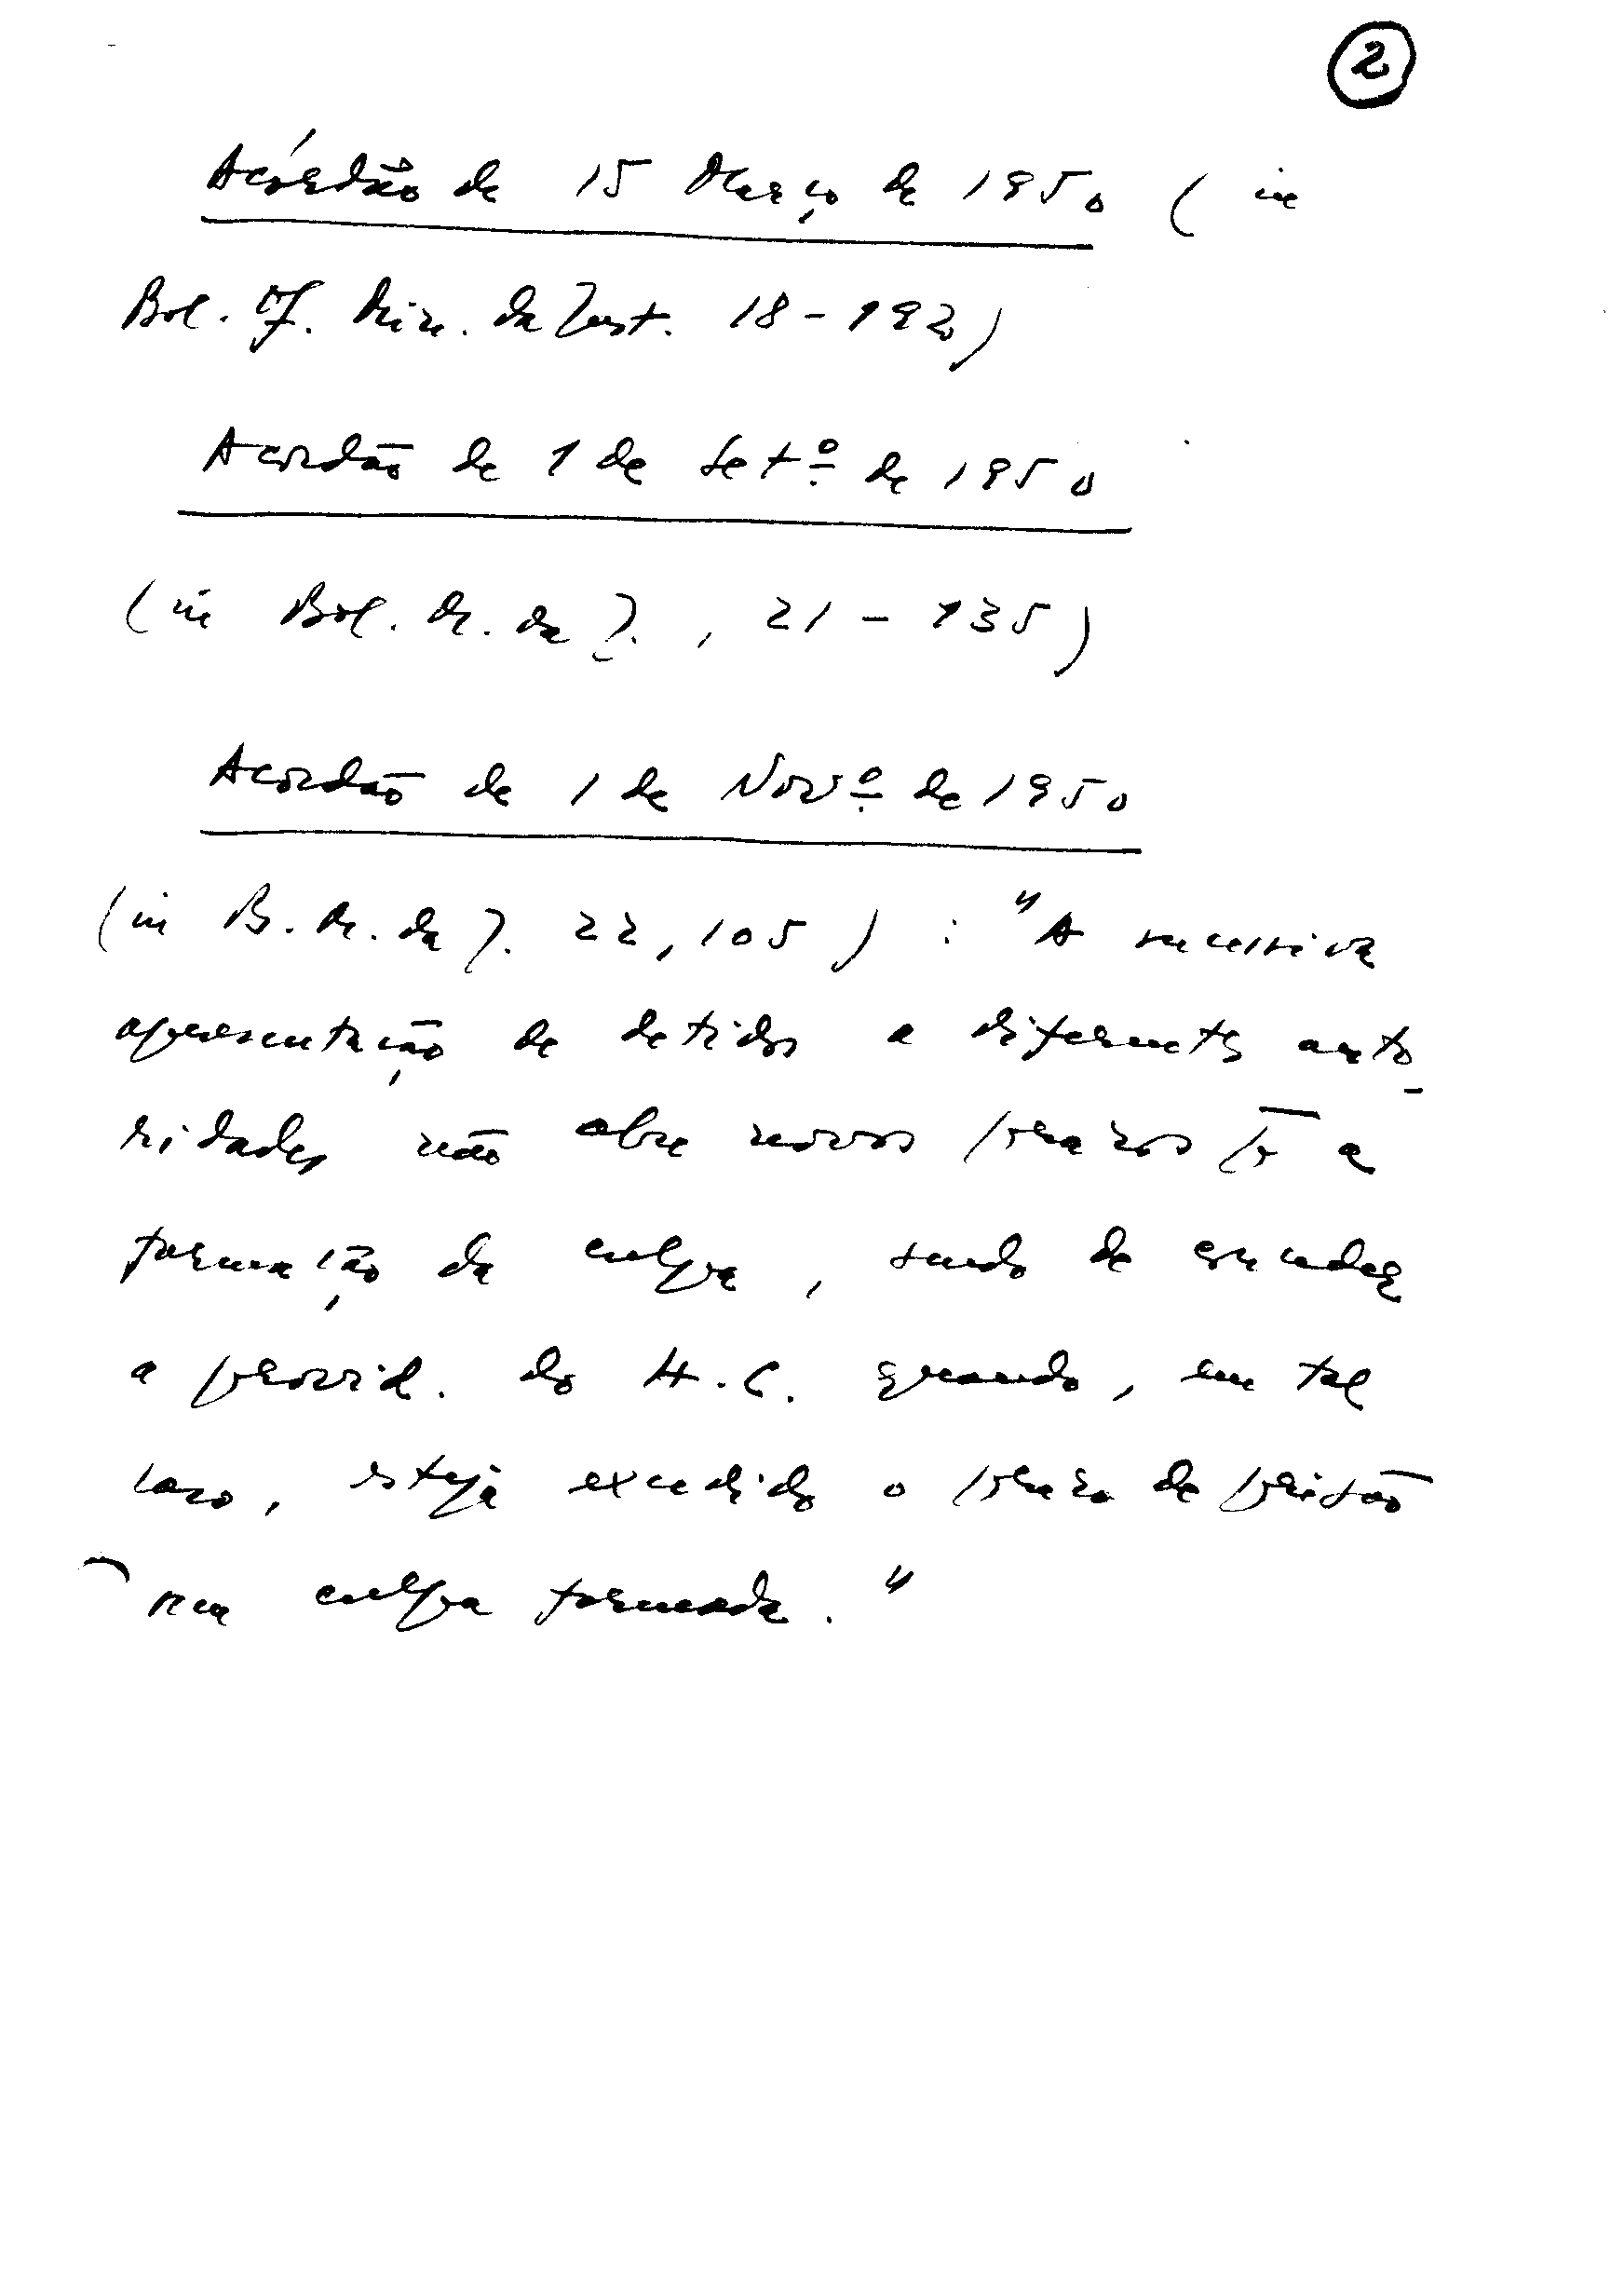 2
Acórdão de 15 Março de 1950 ( in
Bol. Of. Min. da Just. 18 - 192)
Acordão de 1 de Setº de 1950
(in Bol. M. da J., 21 - 135)
Acordão de 1 de Novº de 1950
(in B. M. da J. 22, 105) : "A sucessiva
apresentação de detidos a diferentes auto-
ridades não abre novos prazos p. a
formação da culpa, sendo de conceder
a provid. do H.C. quando, em tal
caso, esteja excedido o prazo de prisão
sem culpa formada."